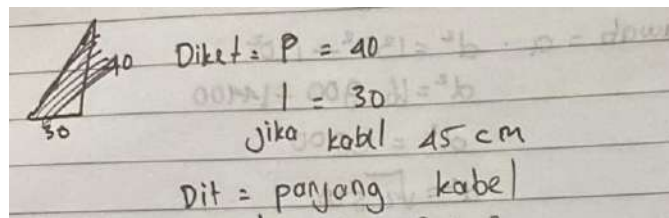 40
30
Diket = P = 40
l = 30
jika kabel 45 cm
Dit = panjang kabel